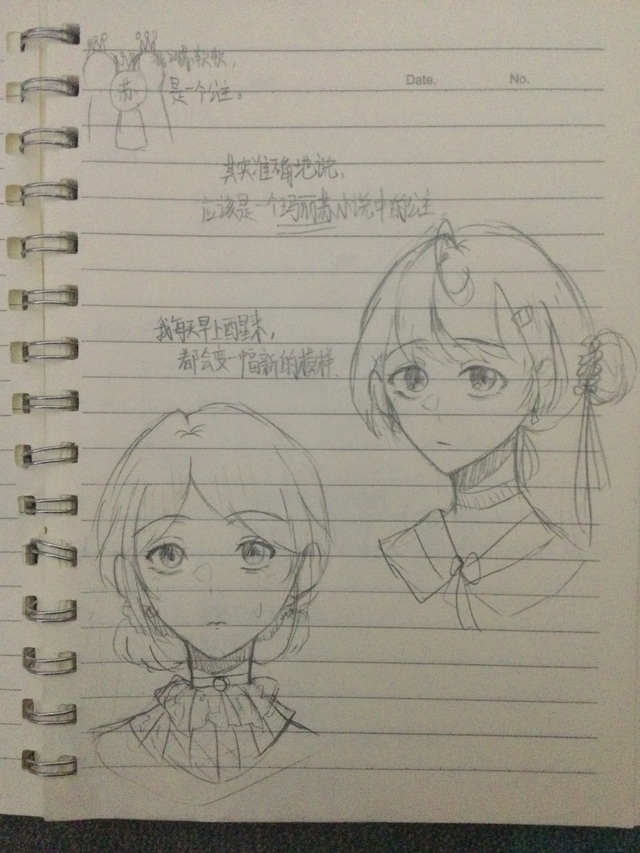 Date. No.
苏
软软,
是一个公主。
其实准确地说,
应该是一个玛丽苏小说中的公主
我每天早上醒来,
都会变一幅新的模样